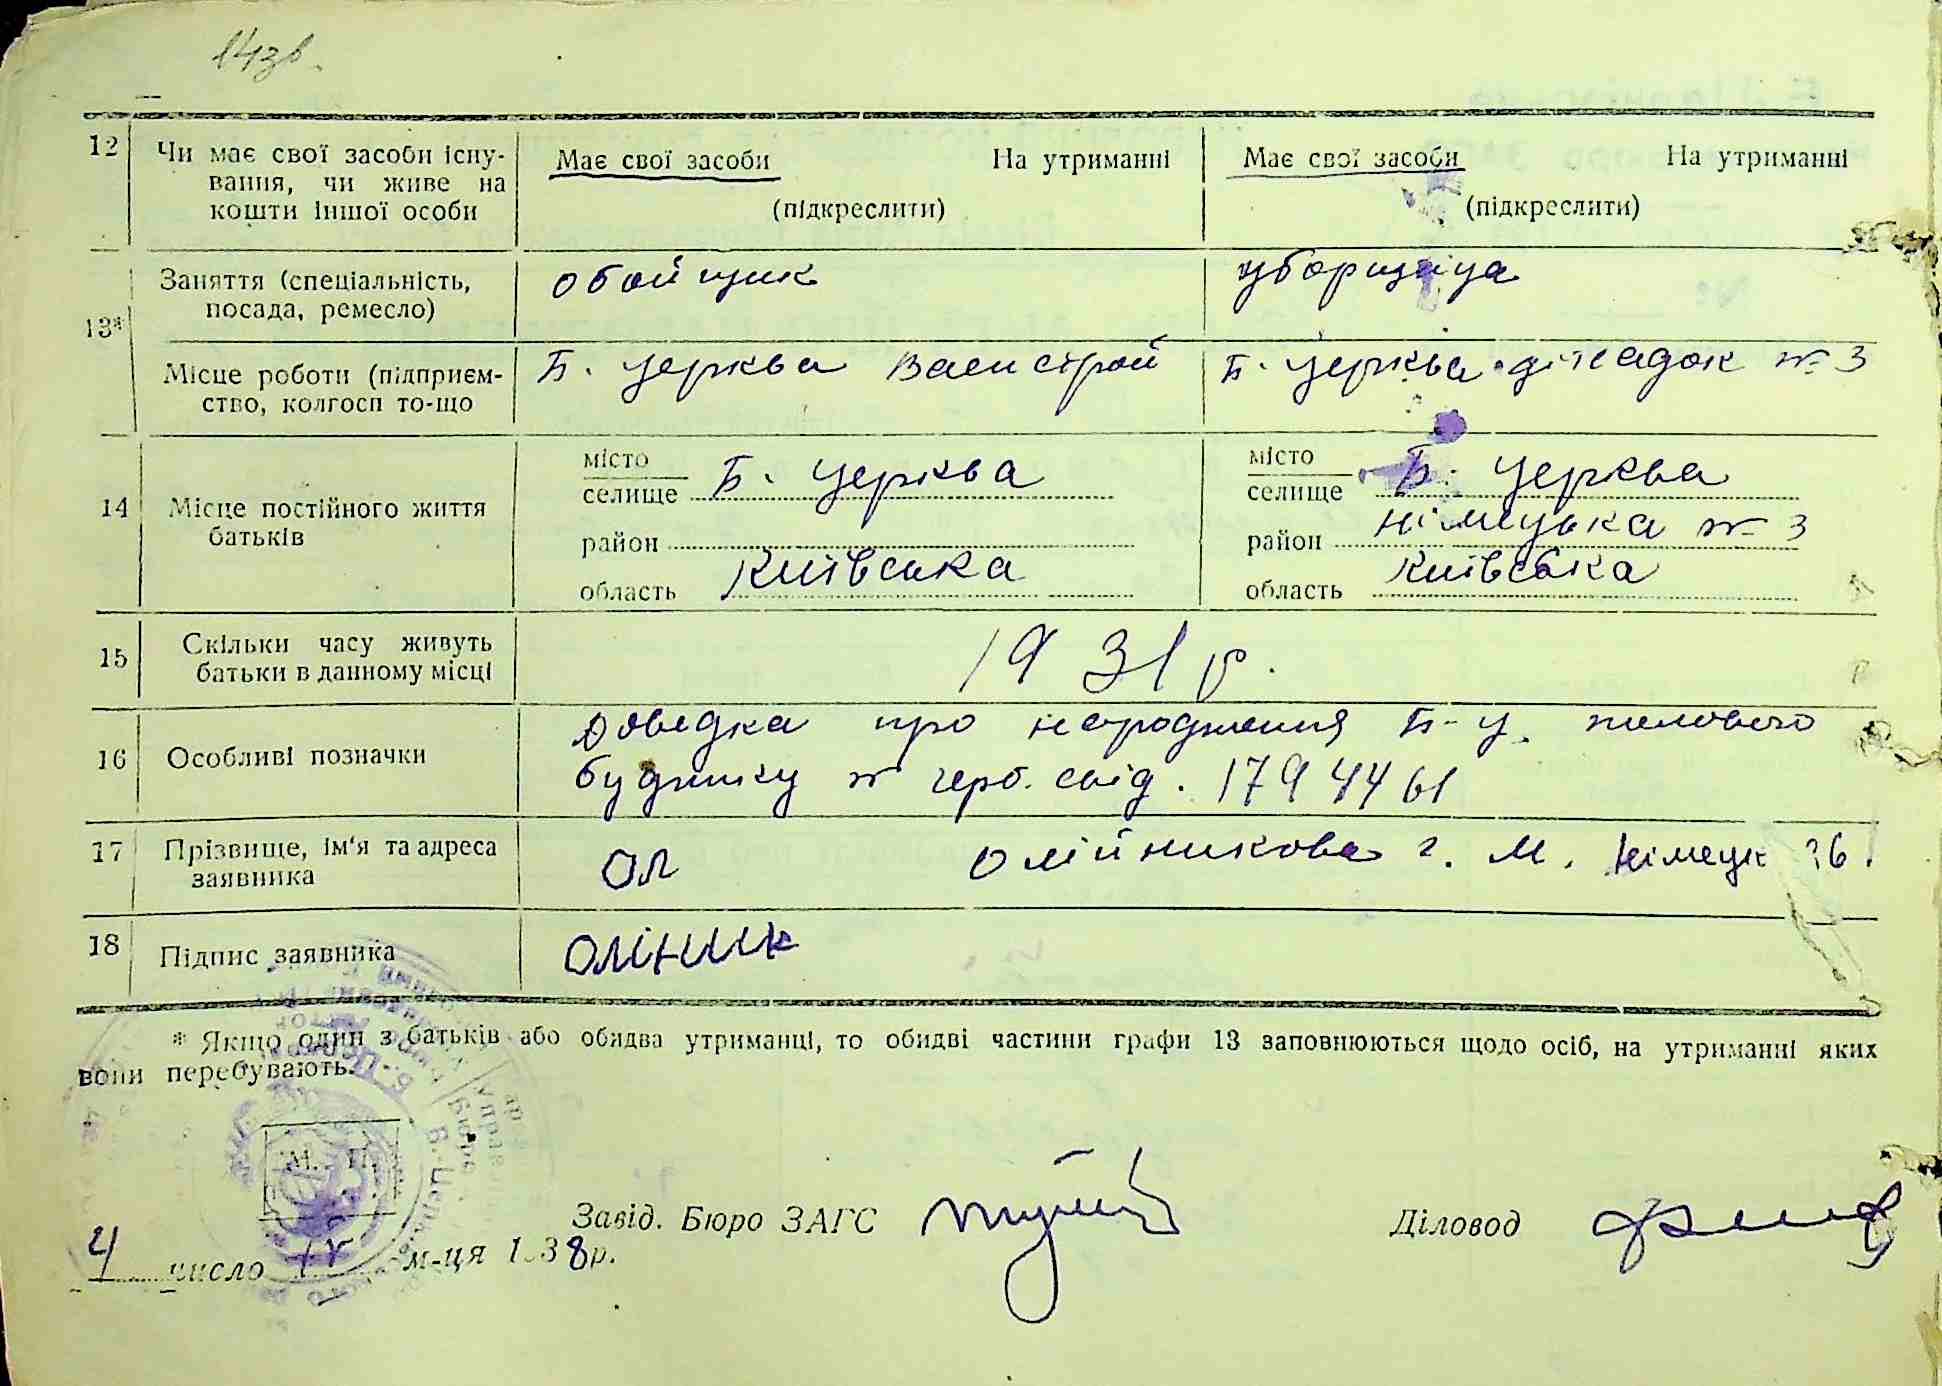 14зв.
12 Чи має свої засоби існу-
вання, чи живе на
кошти іншої особи
Має свої засоби На утриманні
(підкреслити)
Має свої засоби На утриманні
(підкреслити)
13*
Заняття (спеціальність,
посада, ремесло)
обойщик
уборщица
Місце роботи (підприєм-
ство, колгосп то-що
Б. Церква Военстрой
Б. Церква дитсадок № 3
14 Місце постійного життя
батьків
місто
селище Б. Церква
район
область Київська
місто
селище Б. Церква
район Німецька № 3
область Київська
15 Скільки часу живуть
батьки в данному місці
1931 р.
16 Особливі позначки
Довідка про народження Б-Ц. пологового
будинку № герб. свід. 1794461
17 Прізвище, ім'я та адреса
заявника
Ол Олійникова Г. М. Німецк 36.
18 Підпис заявника
Оліник
* Якщо один з батьків або обидва утриманці, то обидві частини графи 13 заповнюються щодо осіб, на утриманні яких
вони перебувають.
М. П.
4 число IV м-ця 1938р.
Завід. Бюро ЗАГС
Діловод